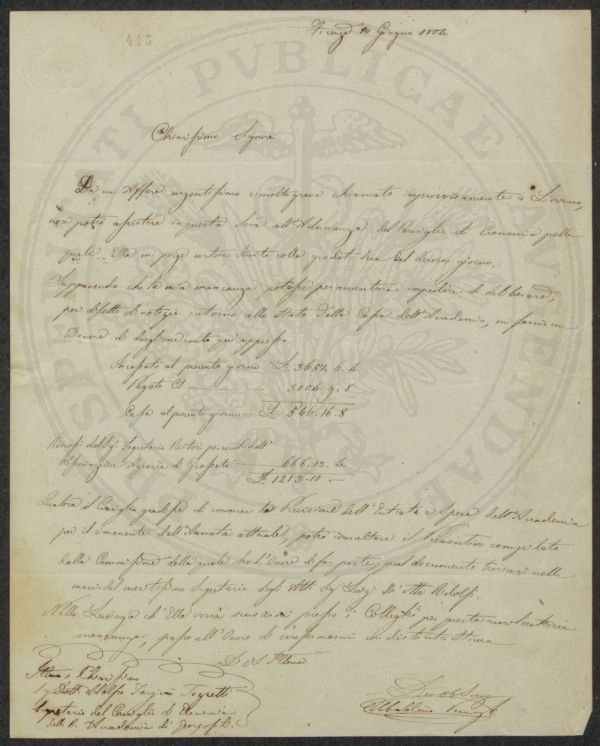 415
Firenze 10 Giugno 1854
Chiarissimo Signore
Da un Affare urgentissimo e molto grave chiamato improvvisamente a Livorno,
non potrò assistere in questa sera all'Adunanza del Consiglio di Economia pella
quale Ella mi porge cortese Invito colla gradita sua del decorso giorno.
Supponendo che la mia mancanza potesse per avventura impedire le deliberare,
per difetto di notizie intorno allo Stato della Cassa dell'Accademia, mi faccio un
Dovere di qui appresso
Incassato al presente giorno £ 3651. 6. 4
Pagato 3104. 9. 8
Cassa al presente giorno £ 546. 16. 8
dal Sig. Segretario Ricevi per conto dell'
Agraria di 666. 13. 4
£ 1213. 10 —
Qualora il Consiglio gradisse di conoscere la dell'Entrata e Spesa dell'Accademia
per il rimanente dell'Annata attuale, potrà consultare il Preventivo compilato
dalla Commissione della quale ho l'Onore di far parte, qual documento trovasi nelle
mani del meritissimo Segretario degli Atti Sig. Luigi de' Mi Ridolfi.
Nella Lusinga ch'Ella vorrà scusarmi presso i Colleghi per questa involontaria
mancanza, passo all'Onore di confermarmi con distinta Stima
Di VS Illma
Illmo e Chiarissimo
Sig. Dott. Adolfo Targioni Tozzetti
Segretario del Consiglio di Economia
della R. Accademia di Georgofili.
Devmo Obb. Servo
SPERITATI PVBLICAE AVGENDAE